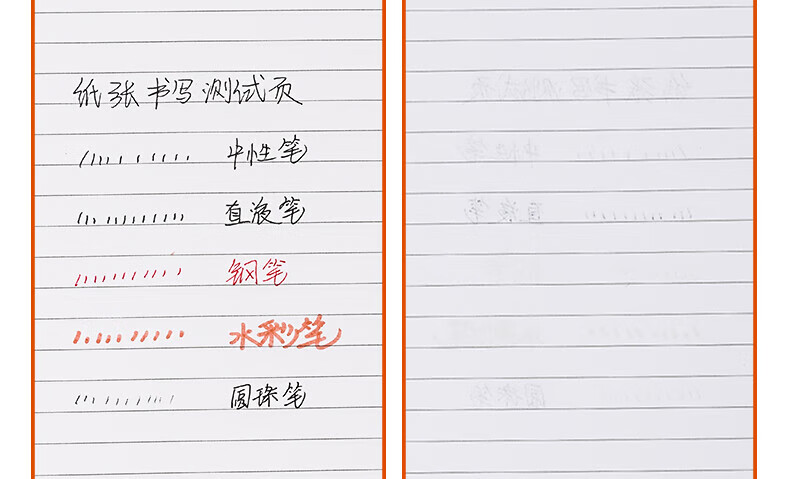 纸张书写测试页
中性笔
直液笔
钢笔
水彩笔
圆珠笔